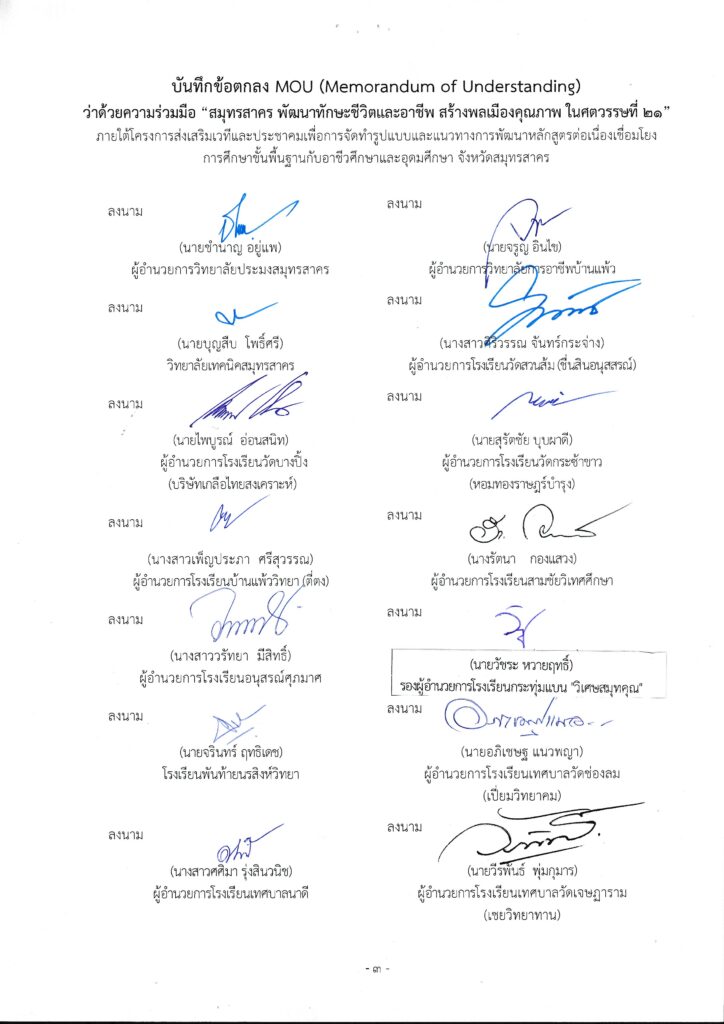 บันทึกข้อตกลง MOU (Memorandum of Understanding)
ว่าด้วยความร่วมมือ “สมุทรสาคร พัฒนาทักษะชีวิตและอาชีพ สร้างพลเมืองคุณภาพ ในศตวรรษที่ ๒๑”
ภายใต้โครงการส่งเสริมเวทีและประชาคมเพื่อการจัดทำรูปแบบและแนวทางการพัฒนาหลักสูตรต่อเนื่องเชื่อมโยง
การศึกษาขั้นพื้นฐานกับอาชีวศึกษาและอุดมศึกษา จังหวัดสมุทรสาคร
ลงนาม
(นายชำนาญ อยู่แพ)
ผู้อำนวยการวิทยาลัยประมงสมุทรสาคร
ลงนาม
(นายจรูญ อินไข)
ผู้อำนวยการวิทยาลัยการอาชีพบ้านแพ้ว
ลงนาม
(นายบุญสืบ โพธิ์ศรี)
วิทยาลัยเทคนิคสมุทรสาคร
ลงนาม
(นางสาวศิริวรรณ จันทร์กระจ่าง)
ผู้อำนวยการโรงเรียนวัดสวนส้ม (ชื่นสินอนุสสรณ์)
ลงนาม
(นายไพบูรณ์ อ่อนสนิท)
ผู้อำนวยการโรงเรียนวัดบางปิ้ง
(บริษัทเกลือไทยสงเคราะห์)
ลงนาม
(นายสุรัตชัย บุบผาดี)
ผู้อำนวยการโรงเรียนวัดกระซ้าขาว
(หอมทองราษฎร์บำรุง)
ลงนาม
(นางสาวเพ็ญประภา ศรีสุวรรณ)
ผู้อำนวยการโรงเรียนบ้านแพ้ววิทยา (ตี่ตง)
ลงนาม
(นางรัตนา กองแสวง)
ผู้อำนวยการโรงเรียนสามชัยวิเทศศึกษา
ลงนาม
(นางสาววรัทยา มีสิทธิ์)
ผู้อำนวยการโรงเรียนอนุสรณ์ศุภมาศ
ลงนาม
(นายวัชระ หวายฤทธิ์)
รองผู้อำนวยการโรงเรียนกระทุ่มแบน "วิเศษสมุทคุณ"
ลงนาม
(นายจรินทร์ ฤทธิเดช)
โรงเรียนพันท้ายนรสิงห์วิทยา
ลงนาม
(นายอภิเชษฐ แนวพญา)
ผู้อำนวยการโรงเรียนเทศบาลวัดช่องลม
(เปี่ยมวิทยาคม)
ลงนาม
(นางสาวศศิมา รุ่งสินวนิช)
ผู้อำนวยการโรงเรียนเทศบาลนาดี
ลงนาม
(นายวีรพันธ์ พุ่มกุมาร)
ผู้อำนวยการโรงเรียนเทศบาลวัดเจษฎาราม
(เชยวิทยาทาน)
- ๓ -